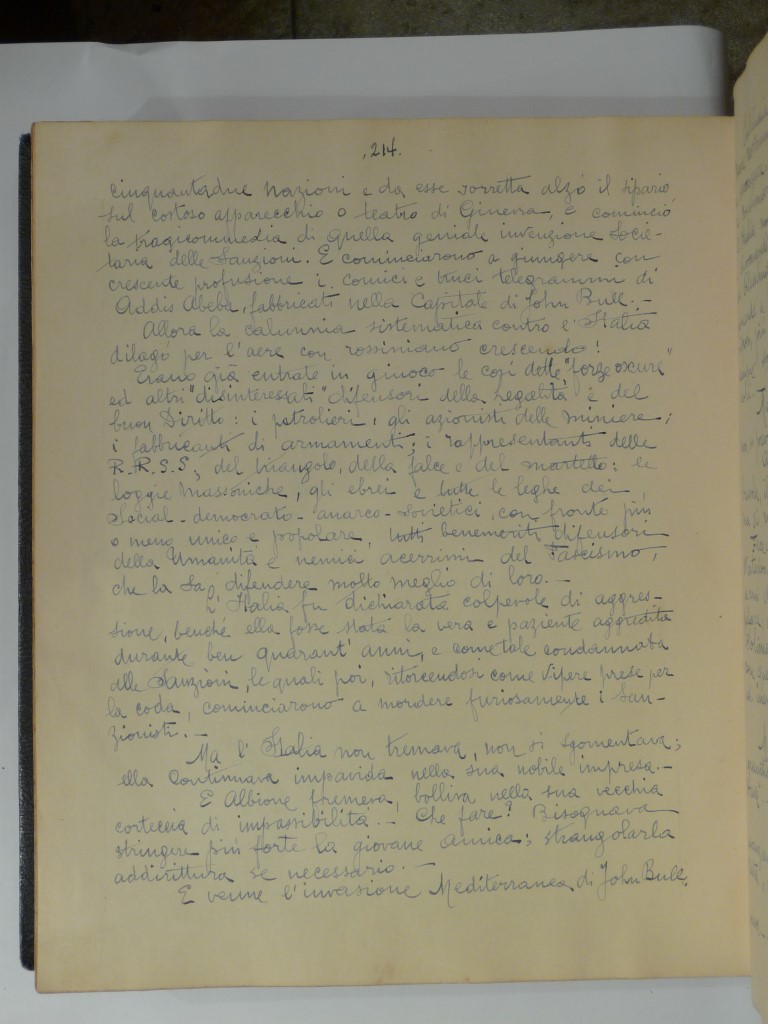 .214.
cinquantadue Nazioni e da esse sorretta alzò il sipario
sul costoso apparecchio o teatro di Ginevra, e cominciò
la tragicommedia di quella geniale invenzione Socie-
taria delle Sanzioni. E cominciarono a giungere con
crescente profusione i comici e truci telegrammi di
Addis Abeba, fabbricati nella Capitale di John Bull.-
Allora la calunnia sistematica contro l'Italia
dilagò per l'aere con rossiniano crescendo!
Erano già entrate in giuoco le così dette "forze oscure"
ed altri "disinteressati" difensori della Legalità e del
buon Diritto: i petrolieri, gli azionisti delle miniere;
i fabbricanti di armamenti; i rappresentanti delle
R.R.S.S., del triangolo, della falce e del martello: le
loggie Massoniche, gli ebrei e tutte le leghe dei
Social-democrato-anarco-sovietici, con fronte più
o meno unico e popolare, tutti benemeriti difensori
della Umanità e nemici acerrimi del Fascismo,
che la sa difendere molto meglio di loro.-
L'Italia fu dichiarata colpevole di aggres-
sione, benché ella fosse stata la vera e paziente aggredita
durante ben quarant'anni, e come tale condannata
alle Sanzioni, le quali poi, ritorcendosi come vipere prese per
la coda, cominciarono a mordere furiosamente i San-
zionisti.-
Ma l'Italia non tremava, non si sgomentava;
ella continuava impavida nella sua nobile impresa.-
E Albione fremeva, bolliva nella sua vecchia
corteccia di impassibilità.- Che fare? Bisognava
stringere più forte la giovane amica; strangolarla
addirittura se necessario.-
E venne l'invasione Mediterranea di John Bull.